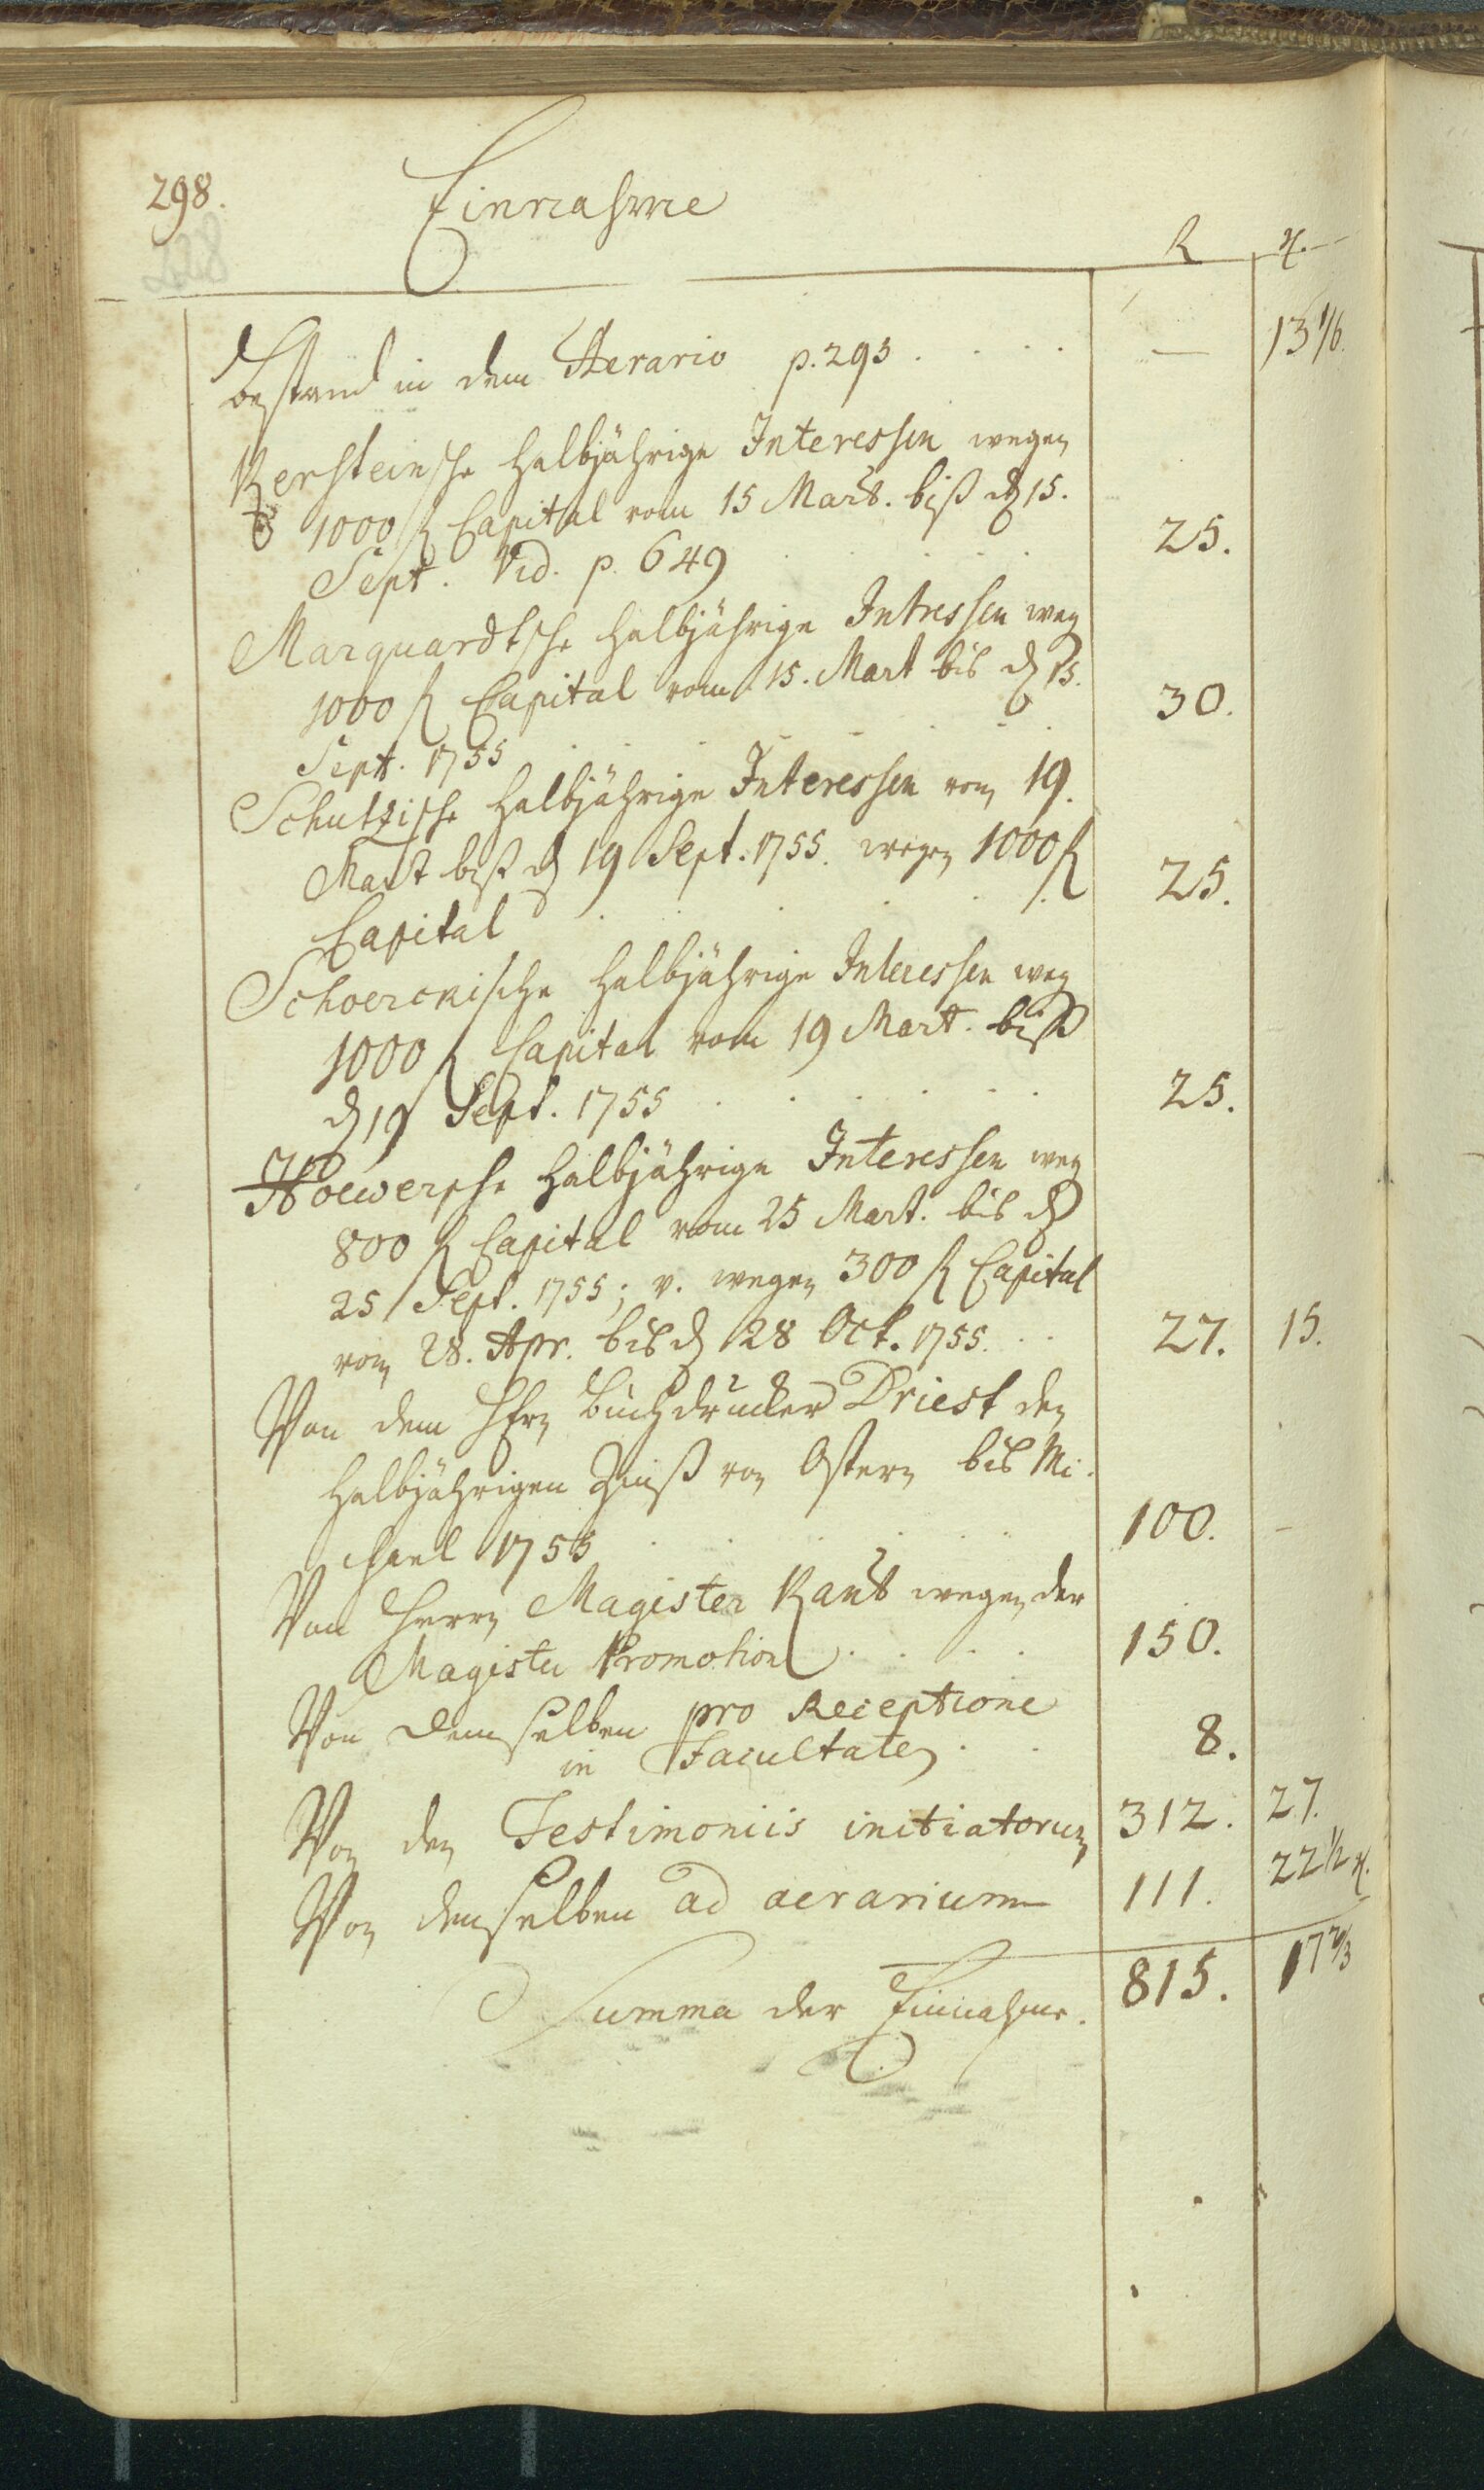 298.
Einnahme
R gl.
Bestand in dem Aerario p. 293 . . . . — 13 1/6.
Kersteinsche halbjährige Interessen wegen
1000 R Capital vom 15 Mart. biß d 15.
Sept. Vid. p. 649 . . . . 25.
Marquardtsche halbjährige Intressen weg
1000 R Capital vom 15. Mart bis d 15.
Sept. 1755 . . . . 30.
Schultzische halbjährige Interessen vom 19.
Mart biß d 19 Sept. 1755. wegen 1000 R
Capital . . . . 25.
Schoerckische halbjährige Interessen weg
1000 R Capital vom 19 Mart. biß
d 19 Sept. 1755 . . . . 25.
Hoewersche halbjährige Interessen weg
800 R Capital vom 25 Mart. bis d
25 Sept. 1755; v. wegen 300 R Capital
vom 28. Apr. bis d 28 Oct. 1755. . . 27. 15.
Von dem Hrn Buchdrucker Driest den
halbjährigen Zinß von Ostern bis Mi-
chael 1755 . . . . 100. –
Von Herrn Magister Kant wegen der
Magister Promotion . . . . 150.
Von demselben pro Receptione
in Facultatem . . 8.
Von den Testimoniis initiatorum 312. 27.
Von denselben ad aerarium 111. 22 1/2 gl.
Summa der Einnahme. 815. 17 2/3